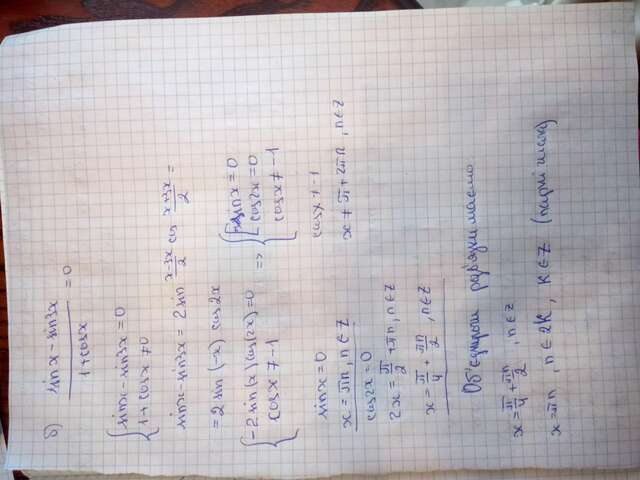 б) (sin x − sin 3x) / (1 + cos x) = 0
{ sin x − sin 3x = 0
{ 1 + cos x ≠ 0
sin x − sin 3x = 2 sin (x−3x)/2 cos (x+3x)/2 =
= 2 sin (−x) cos 2x
{ −2 sin(x) cos(2x) = 0
{ cos x ≠ −1
=> { [ sin x = 0
[ cos 2x = 0
{ cos x ≠ −1
sin x = 0
x = πn, n ∈ Z
cos 2x = 0
2x = π/2 + πn, n ∈ Z
x = π/4 + πn/2, n ∈ Z
cos x ≠ −1
x ≠ π + 2πn, n ∈ Z
Об'єднуючи розв'язки маємо
x = π/4 + πn/2, n ∈ Z
x = πn, n ∈ 2k, k ∈ Z (парні числа)